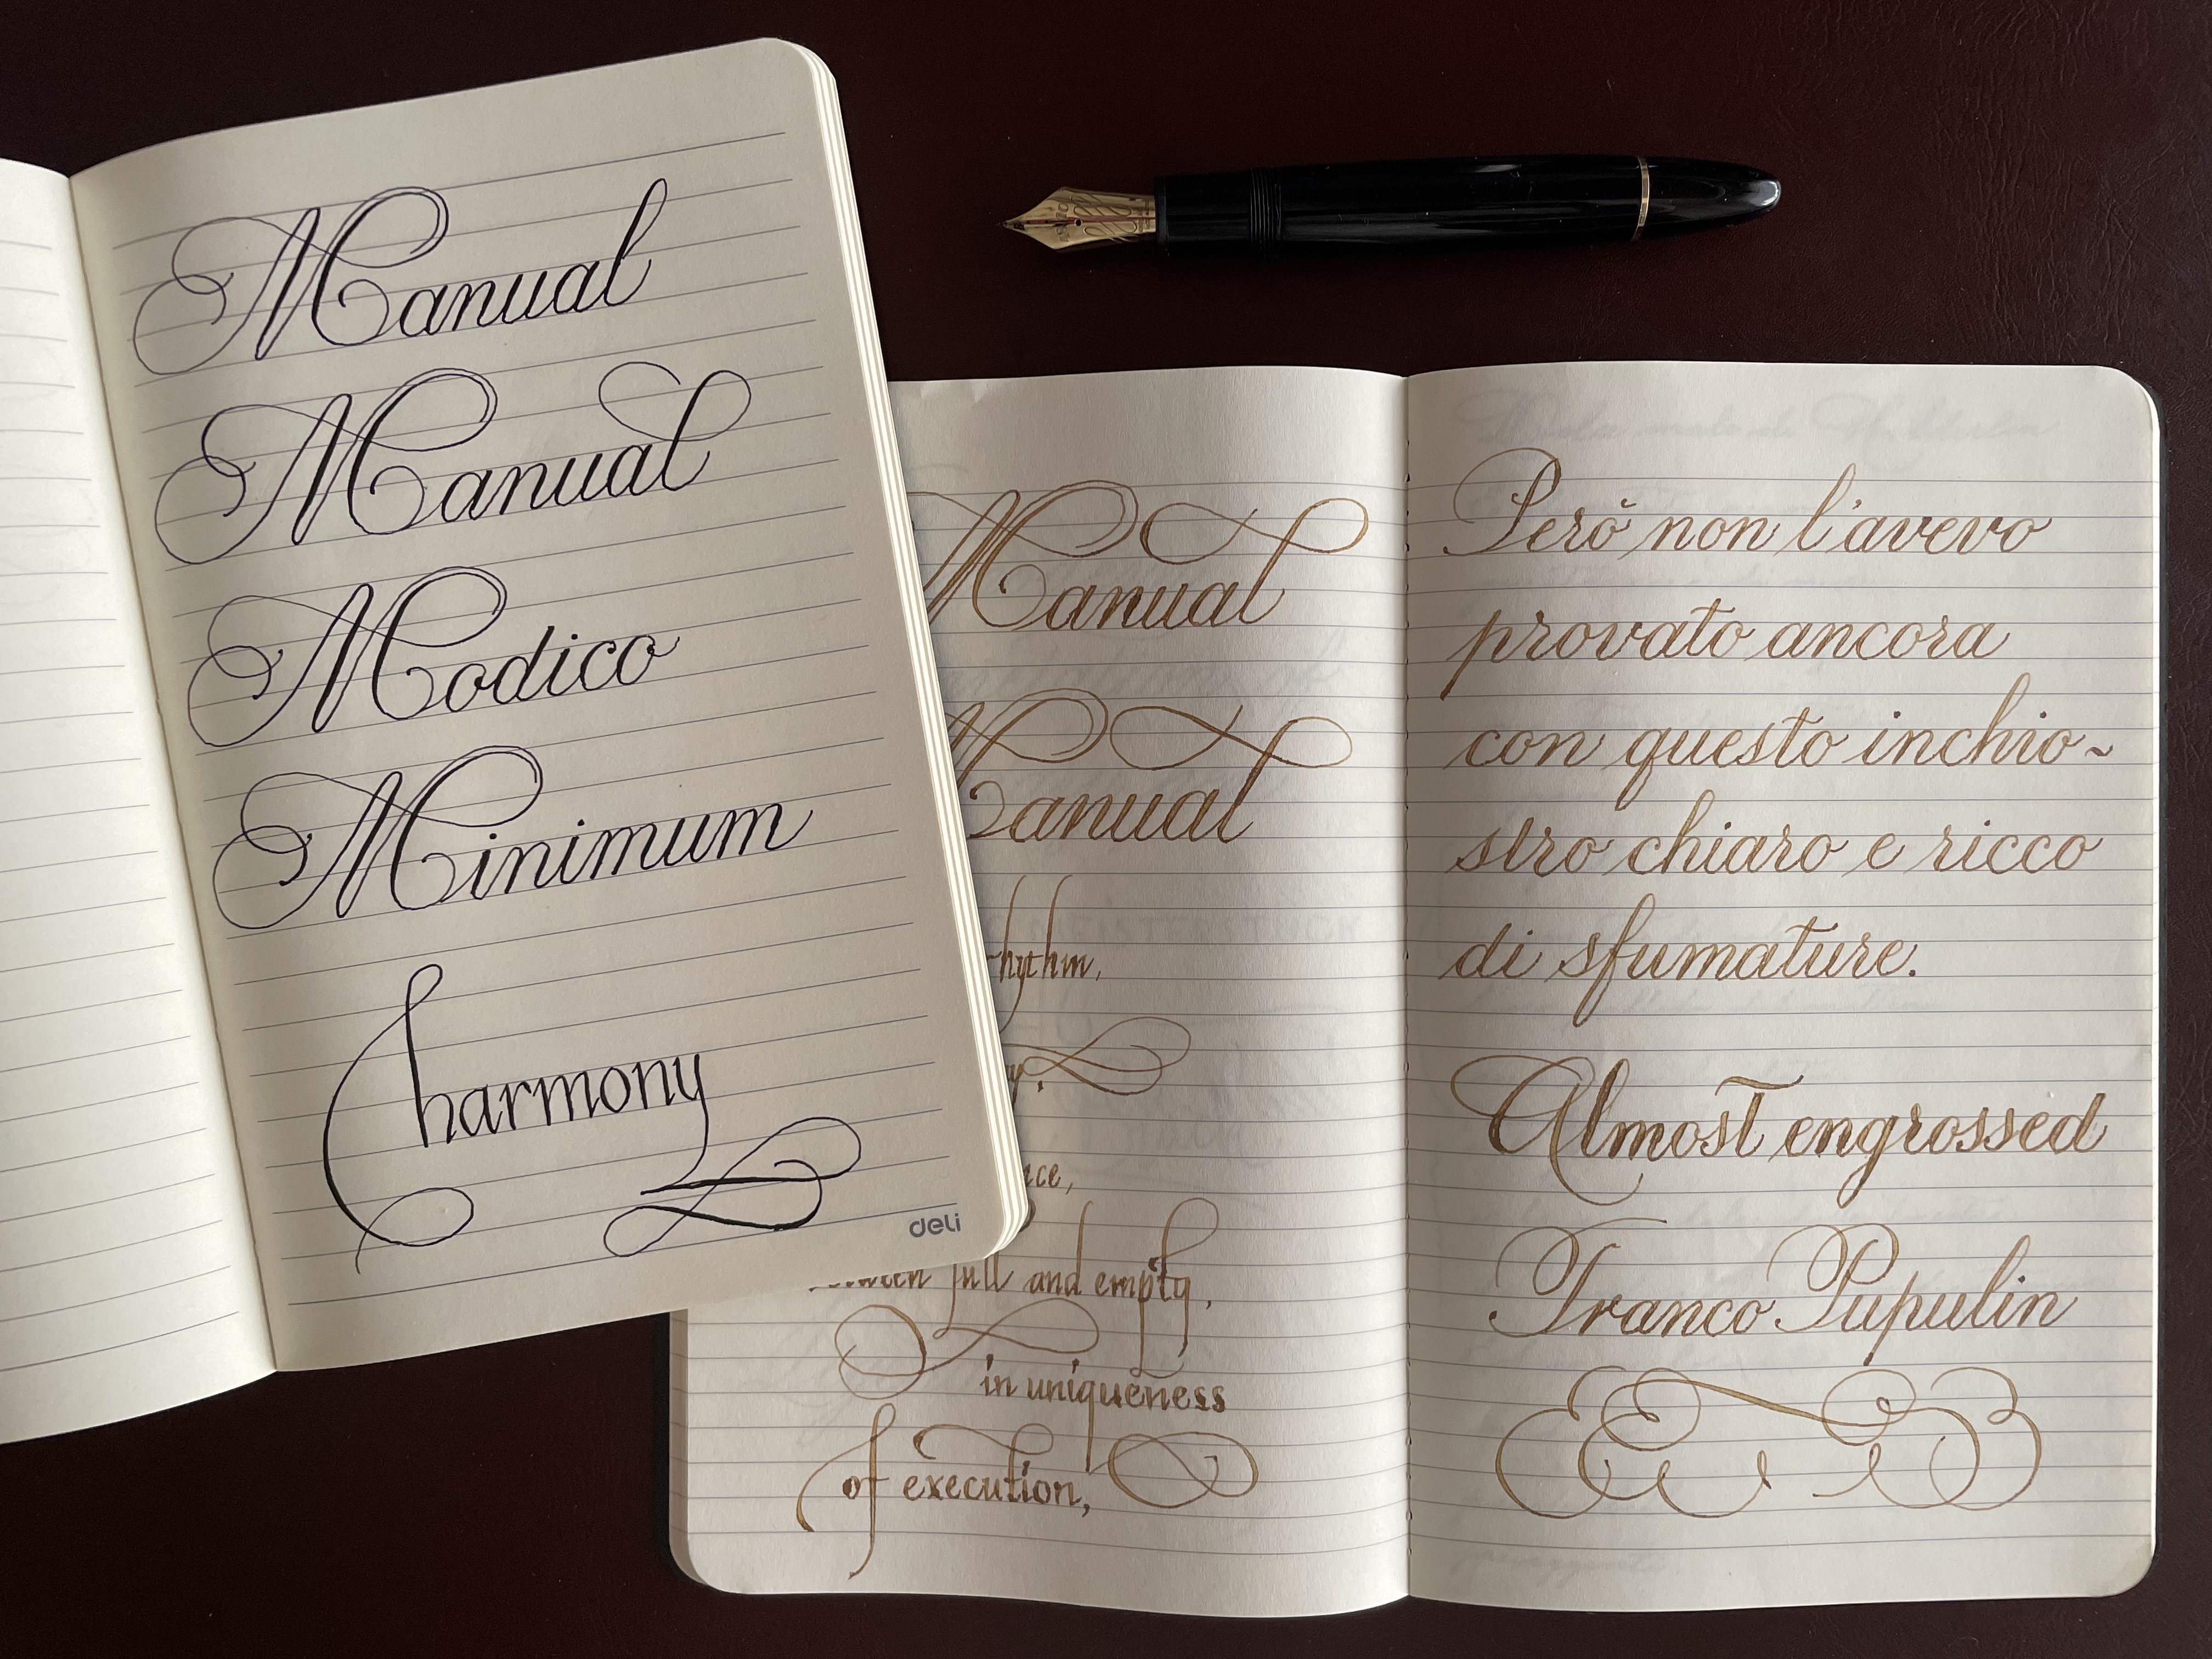 Manual
Manual
Modico
Minimum
harmony
deli
Manual
Manual
full and empty,
in uniqueness
of execution,
Però non l'avevo
provato ancora
con questo inchio~
stro chiaro e ricco
di sfumature.
Almost engrossed
Franco Pupulin